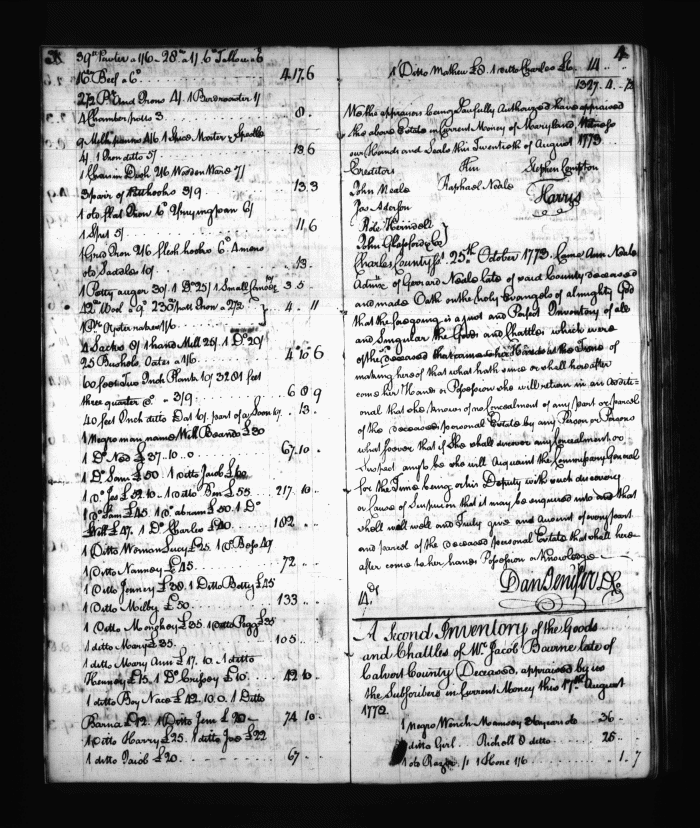 39lb Pewter a 1/6 - 28lb a 1/ 6 Tallow a 6
16lb Beef a 6d 4.17.6
2 1/2 Pr And Irons 4/. 1 Bervender 1/
4 Chamber potts 3 8
9 Milk panns 4/6 1 Spice Morter & Pestle
4/. 1 Iron ditto 5/ 13 6
1 Ewin Dish 2/6 Wooden Ware 7/
3 pair of Pothooks 3/9 13.3
1 old flat Iron 6d Frying pan 6/
1 Spit 5/ 11 6
1 Grid Iron 2/6 flesh hooks 6d 4 mens
old Saddles 10/ 13
1 Potty auger 30/. 1 Do 25/ 1 Small 3.5
42lb Wool a 9d 230 pott Iron a 2 1/2
1 Pr Oyster 1/6 4 11
4 Sacks 8/ 1 hand Mill 26/. 1 Do 20/
25 Bushels Oates a 1/6 4 10 6
60 feet Two Inch Plank 10/ 3281 feet
three quarter do 3/9 6 8 9
40 feet Inch ditto 13
1 Negro man name Will Beando £30
1 Do Ned £37.10.0 67.10
1 Do Sam £50. 1 ditto Jacob £60
1 Do Jos £52.10. 1 ditto Ben £55 217 10
1 Do Sam £45. 1 Do abram £50. 1 Do
Will £47. 1 Do Charles £40 182
1 Ditto Woman Lucy £25. 1 Do Bess 47
1 Ditto Nanney £45 72
1 Ditto Jenney £38. 1 Ditto Betty £45
1 Ditto Milby £50 133
1 Ditto Monghoy £35 1 ditto Pegg £35
1 ditto Mary £35 105
1 ditto Mary Ann £17.10. 1 ditto
Henney £15. 1 Do £10 42 10
1 ditto Boy Nace £42.10.0. 1 Ditto
Barna £12. 1 Ditto Jem £20 74 10
1 Ditto Harry £25. 1 ditto Joe £22
1 ditto Jacob £20 67
4
1 Ditto Mathew £8. 1 ditto Charles £6 14
1327.4.
We the appraisors being Lawfully Authorized have appraised
the above Estate in Current Money of Maryland, Witness
our Hands and Seals this Twentieth of August 1773
Creditors Kin Stephen Compton
John Neale Raphael Neale Harris
Jas Aderson
John Glassford & Co
Charles County Sst. 25th October 1773. Came Ann Neale
Actrix of Gerrard Neale late of said County deceased
and made Oath on the holy Evangels of almighty God
that the foregoing is a just and Perfect Inventory of all
and Singular the Goods and Chattles which were
of the deceased that came to her Hands at the Time of
making hereof that what hath since or shall hereafter
come her Hand or Possession she will return in an Additi-
onal that she knows of no Concealment of any part or parcel
of the deceased personal Estate by any Person or Persons
whatsoever that if She shall discover any Concealment or
Suspect any to be she will Acquaint the Commissary General
for the Time being or his Deputy with such discovery
or Cause of Suspicion that it may be enquired into and that
shall well and truly give and Amount of every part
and parcel of the deceased personal Estate that shall here-
after come to her hands Possession or Knowledge
Dan Jenifer
14 ds
A Second Inventory of the Goods
and Chattles of Mr Jacob Bourne late of
Calvert County Deceased, appraised by us
the Subscribers in Current Money this 17th August
1772
1 Negro Wench 36
1 ditto Girl 8 ditto 26
1 old Razor 1/ 1 Hone 1/6 1.7